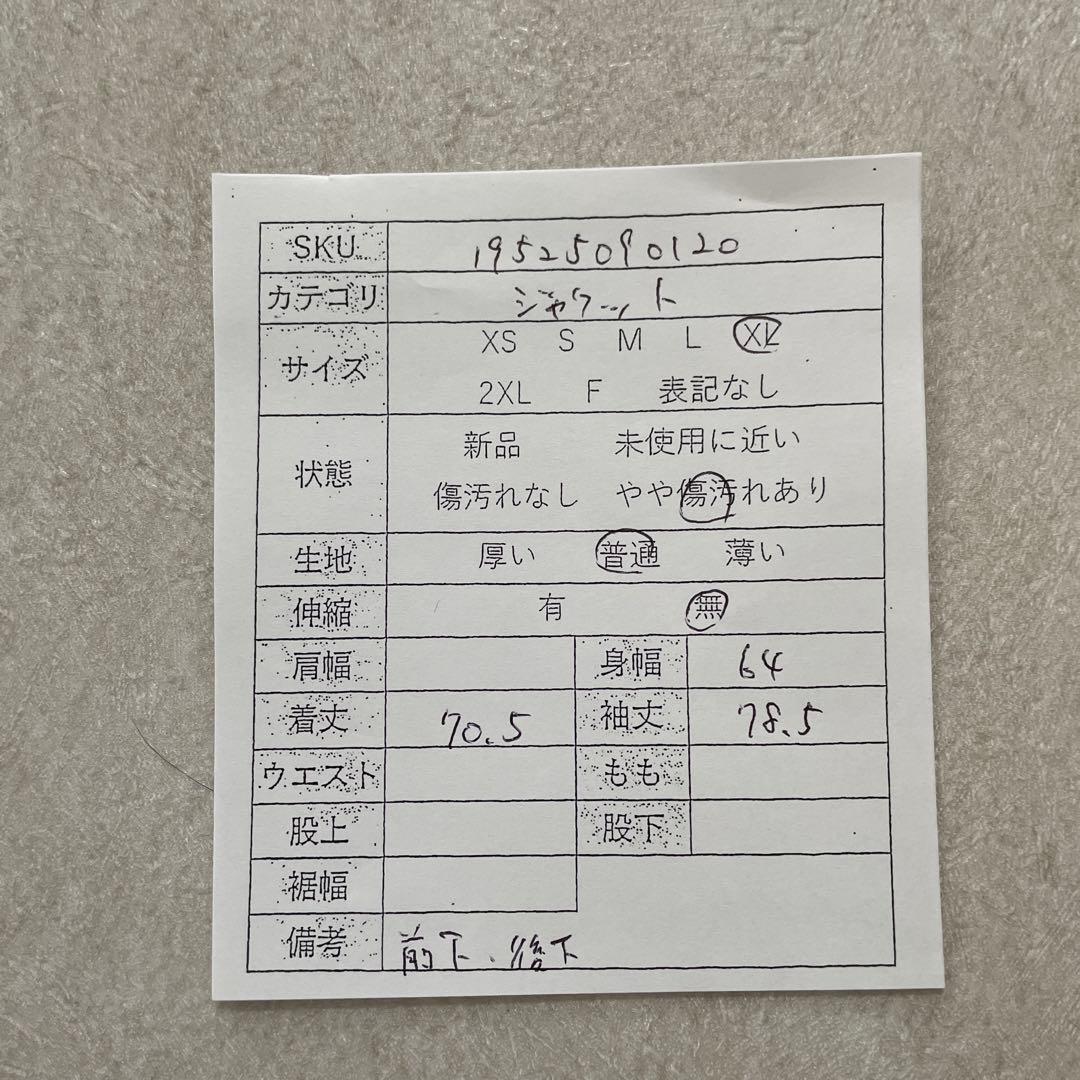 SKU 19525090120
カテゴリ ジャケット
サイズ XS S M L XL
2XL F 表記なし
状態 新品 未使用に近い
傷汚れなし やや傷汚れあり
生地 厚い 普通 薄い
伸縮 有 無
肩幅 身幅 64
着丈 70.5 袖丈 78.5
ウエスト もも
股上 股下
裾幅
備考 前下、後下